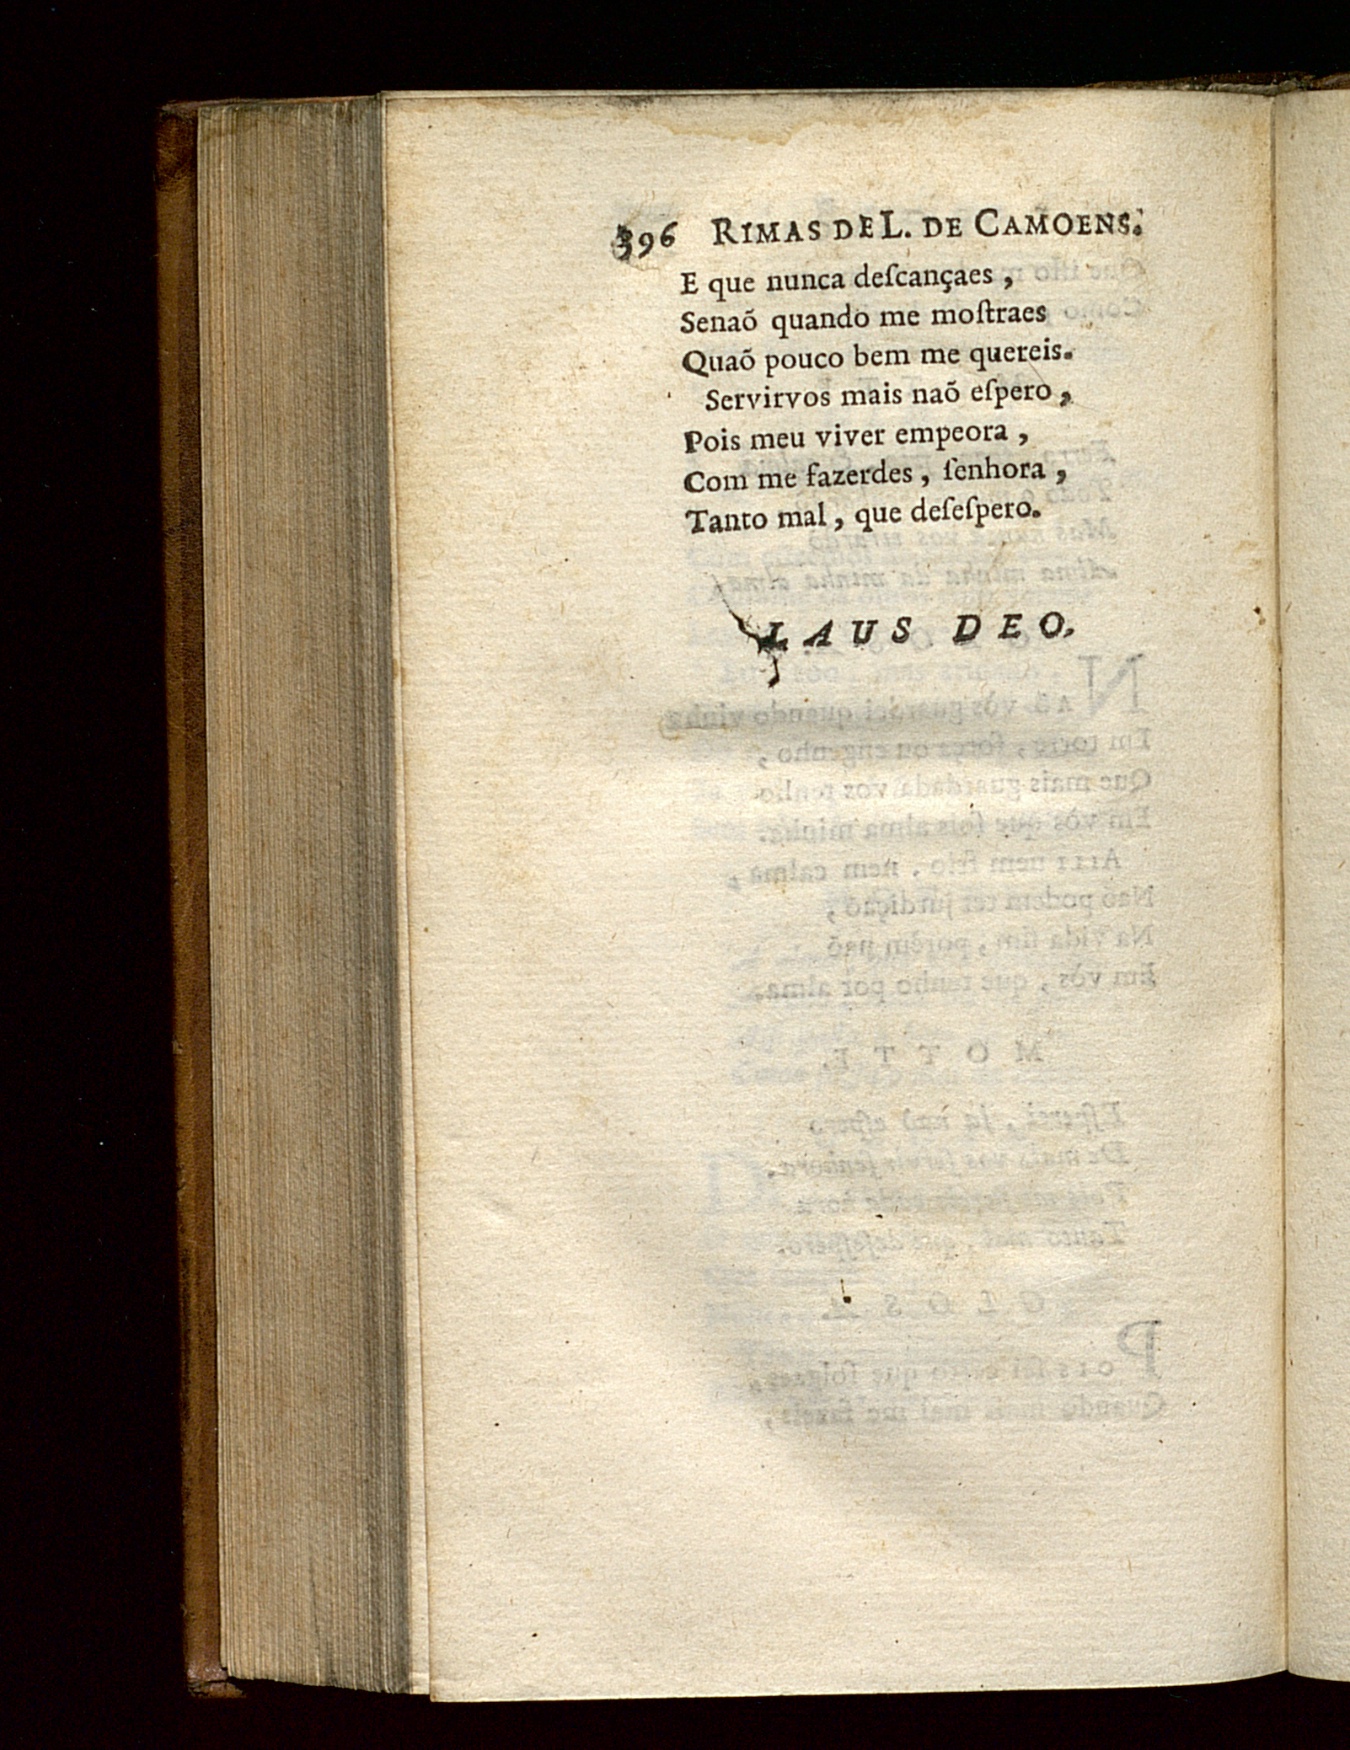 396 RIMAS DE L. DE CAMOENS.
E que nunca deſcançaes ,
Senaõ quando me moſtraes
Quaõ pouco bem me quereis.
Servirvos mais naõ eſpero ,
Pois meu viver empeora ,
Com me fazerdes , ſenhora ,
Tanto mal , que deſeſpero.
LAUS DEO.